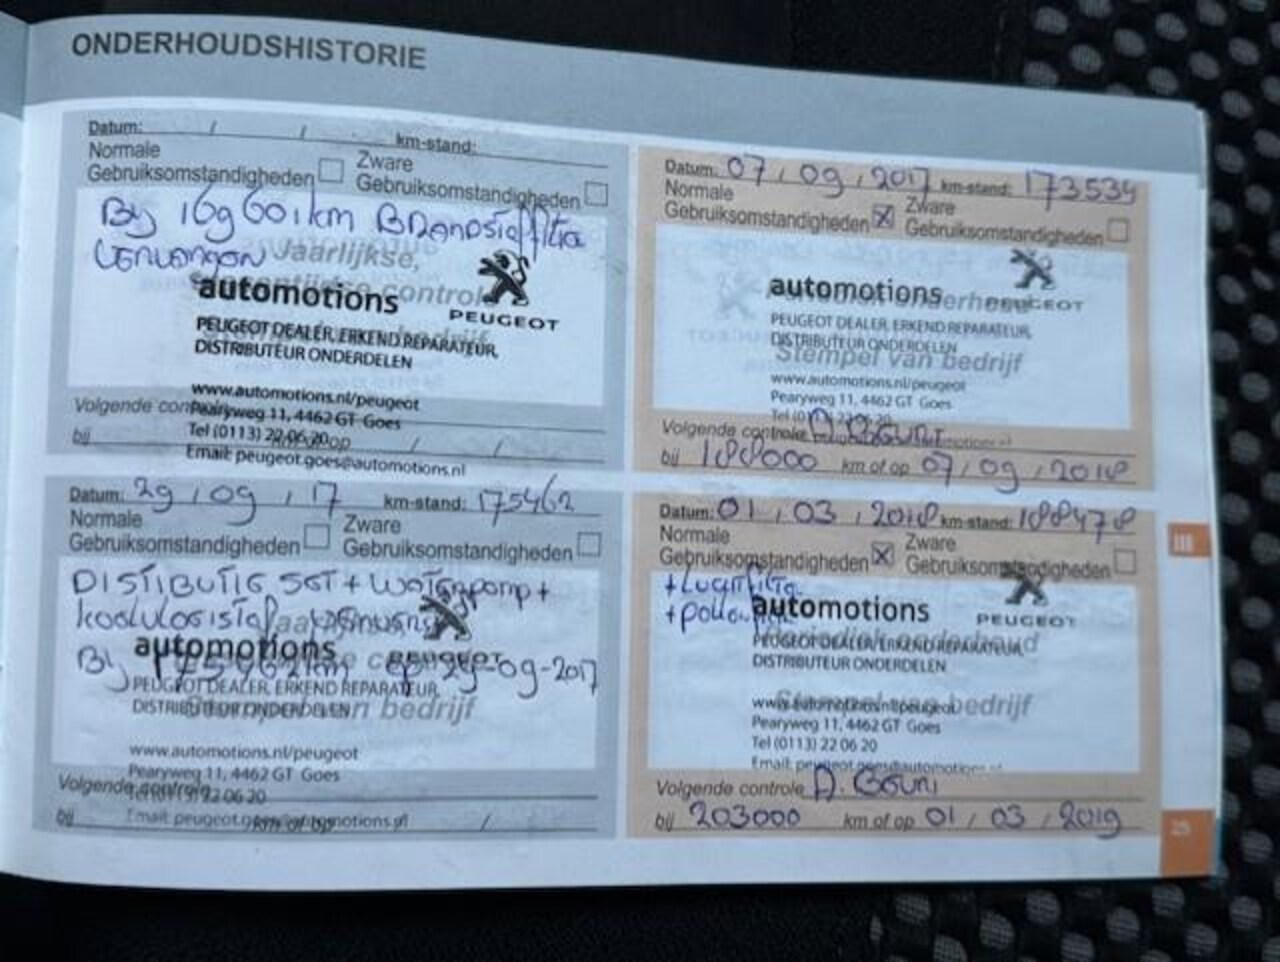 ONDERHOUDSHISTORIE
Datum: / / km-stand:
Normale
Gebruiksomstandigheden
Zware
Gebruiksomstandigheden
Bij 169601 km Brandstoffilter
vervangen
Jaarlijkse,
automotions
PEUGEOT
PEUGEOT DEALER, ERKEND REPARATEUR,
DISTRIBUTEUR ONDERDELEN
www.automotions.nl/peugeot
Pearyweg 11, 4462 GT Goes
Tel (0113) 22 06 20
Email: peugeot.goes@automotions.nl
Volgende
bij / /
Datum: 07 / 09 / 2017 km-stand: 173534
Normale
Gebruiksomstandigheden
Zware
Gebruiksomstandigheden
automotions
PEUGEOT
PEUGEOT DEALER, ERKEND REPARATEUR,
DISTRIBUTEUR ONDERDELEN
Stempel van bedrijf
www.automotions.nl/peugeot
Pearyweg 11, 4462 GT Goes
Volgende controle
bij 188000 km of op 07 / 09 / 2018
Datum: 29 / 09 / 17 km-stand: 175462
Normale
Gebruiksomstandigheden
Zware
Gebruiksomstandigheden
Distributie set + waterpomp +
automotions
PEUGEOT
Bij 175462 km op 29-09-2017
PEUGEOT DEALER, ERKEND REPARATEUR,
DISTRIBUTEUR ONDERDELEN
bedrijf
www.automotions.nl/peugeot
Pearyweg 11, 4462 GT Goes
Volgende controle
Tel (0113) 22 06 20
bij km of op /
Datum: 01 / 03 / 2018 km-stand: 188478
Normale
Gebruiksomstandigheden
Zware
Gebruiksomstandigheden
+ Luchtfilter
automotions
PEUGEOT
PEUGEOT DEALER, ERKEND REPARATEUR,
DISTRIBUTEUR ONDERDELEN
Stempel van bedrijf
www.automotions.nl/peugeot
Pearyweg 11, 4462 GT Goes
Tel (0113) 22 06 20
Email: peugeot.goes@automotions.nl
Volgende controle
bij 203000 km of op 01 / 03 / 2019
III
25